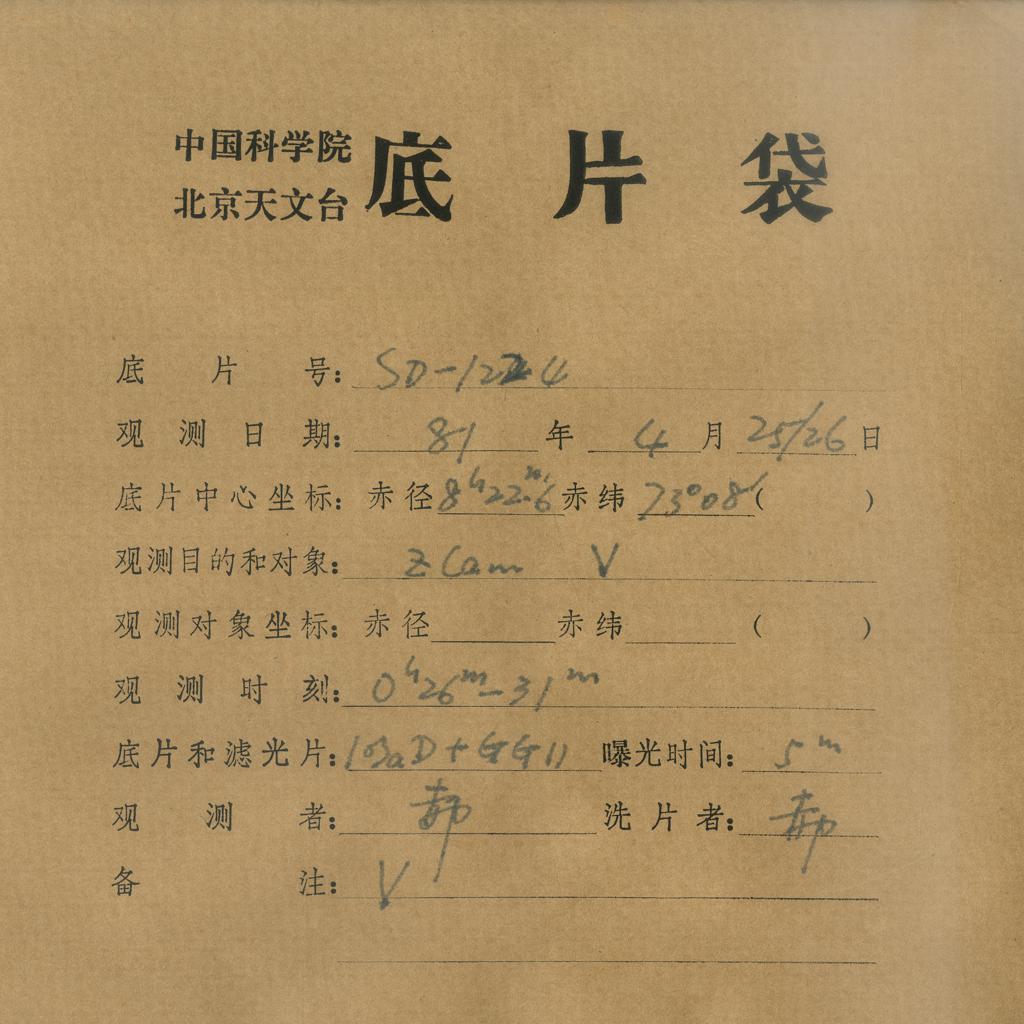 中国科学院
北京天文台
底片袋
底片号: SD-1224
观测日期: 81年 4月 25/26日
底片中心坐标: 赤径 8ʰ22ᵐ.6 赤纬 73°08′ ( )
观测目的和对象: Z Cam V
观测对象坐标: 赤径 赤纬 ( )
观测时刻: 0ʰ26ᵐ-31ᵐ
底片和滤光片: 103aD+GG11 曝光时间: 5ᵐ
观测者: 洗片者:
备注: V